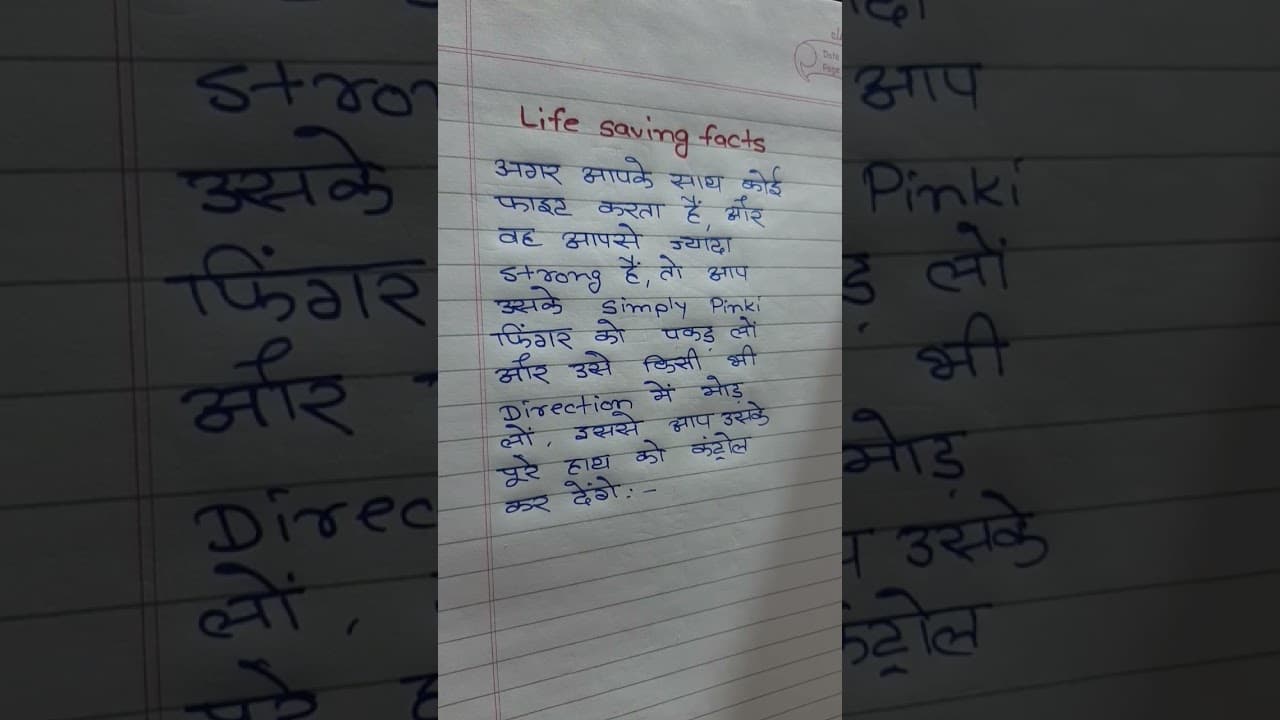 Date
Page
Life saving facts
अगर आपके साथ कोई
फाइट करता हैं, और
वह आपसे ज्यादा
strong हैं, तो आप
उसके simply Pinki
फिंगर को पकड़ लों
और उसे किसी भी
Direction में मोड़
लों, इससे आप उसके
पूरे हाथ को कंट्रोल
कर देंगे:-